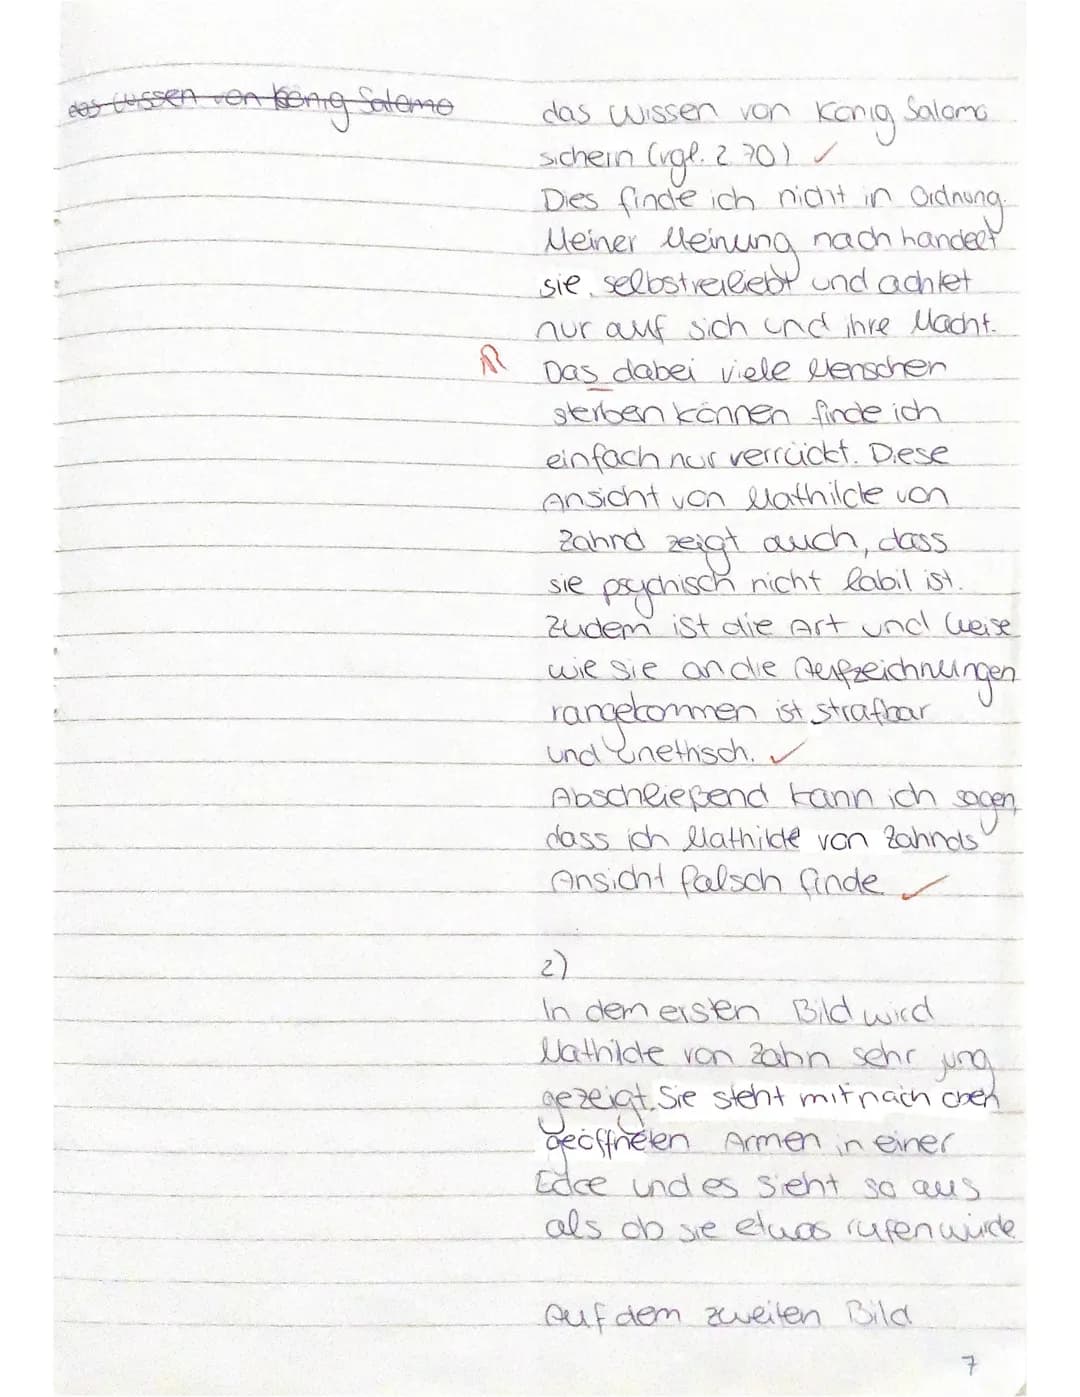 das Wissen von König Salomo
das Wissen von König Salomo
sichern (vgl. Z 70) ✓
Dies finde ich nicht in Ordnung.
Meiner Meinung nach handelt
sie selbstverliebt und achtet
nur auf sich und ihre Macht.
R Das dabei viele Menschen
sterben können finde ich
einfach nur verrückt. Diese
Ansicht von Mathilde von
Zahnd zeigt auch, dass
sie psychisch nicht labil ist.
Zudem ist die Art und Weise
wie sie an die Aufzeichnungen
rangekommen ist strafbar
und unethisch. ✓
Abschließend kann ich sagen,
dass ich Mathilde von Zahnds
Ansicht falsch finde ✓
2)
In dem ersten Bild wird
Mathilde von Zahn sehr jung
gezeigt. Sie steht mit nach oben
geöffneten Armen in einer
Ecke und es sieht so aus
als ob sie etwas rufen würde
Auf dem zweiten Bild
7